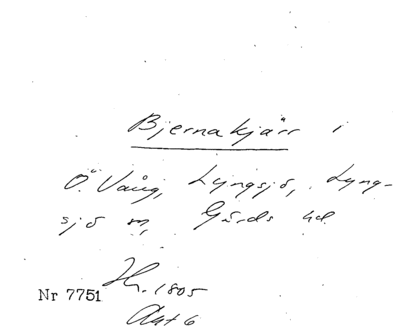 Bjernakjärr i
Ö. Vång, Lyngsjö, Lyng-
sjö sn, Gärds hd
Hr. 1805
Nr 7751
Akt 6